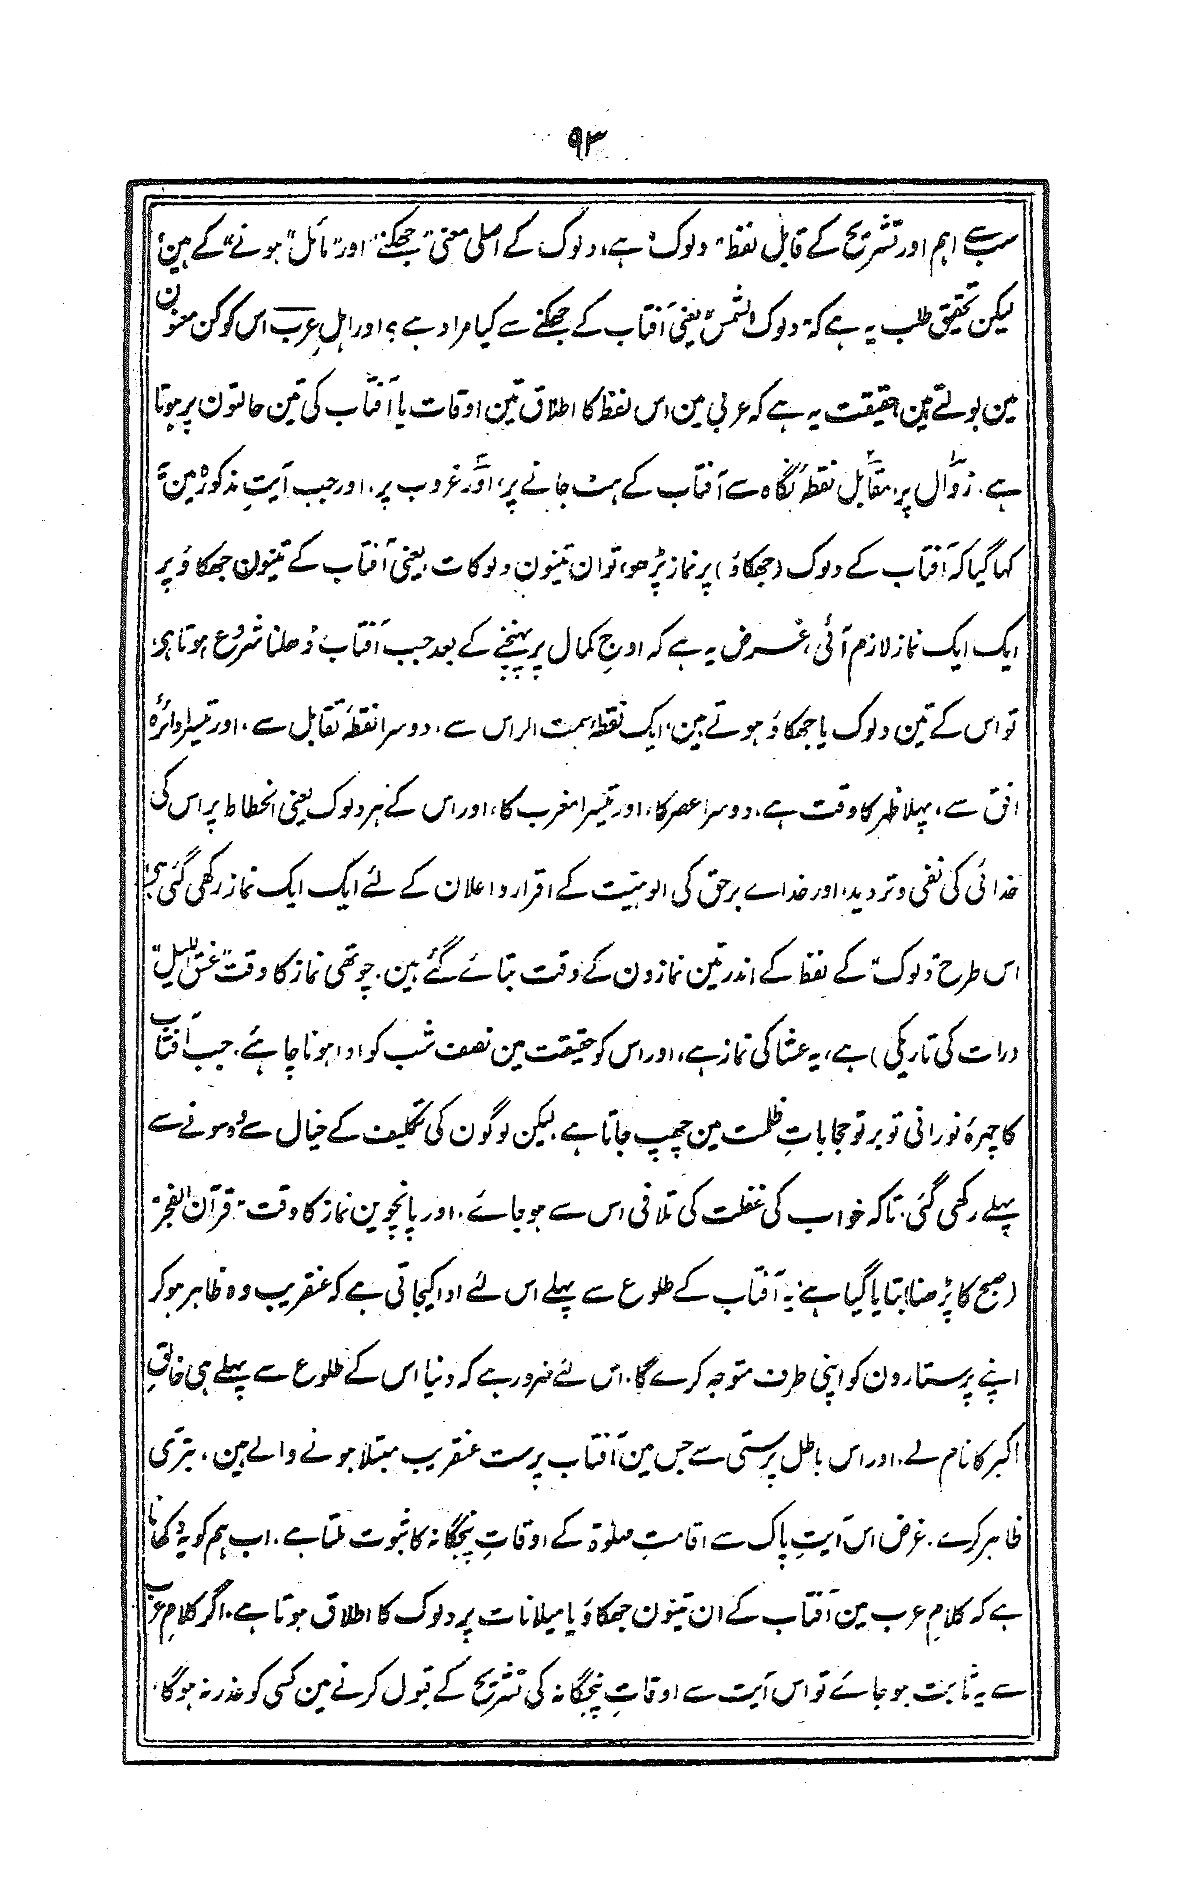 ۹۳
سب سے اہم اور تشریح کے قابل لفظ "دلوک" ہے، دلوک کے اصلی معنی "جھکنے" اور "مائل" ہونے" کے ہین،
لیکن تحقیق طلب یہ ہے کہ "دلوک الشمس" یعنی آفتاب کے جھکنے سے کیا مراد ہے؟ اور اہلِ عرب اس کو کن معنون
مین بولتے ہین، حقیقت یہ ہے کہ عربی مین اس لفظ کا اطلاق تین اوقات یا آفتاب کی تین حالتون پر ہوتا
ہے، زوال پر، مقابل نقطۂ نگاہ سے آفتاب کے ہٹ جانے پر، اور غروب پر، اور جب آیتِ مذکورہ مین یہ
کہا گیا کہ آفتاب کے دلوک (جھکاؤ) پر نماز پڑھو، تو ان تینون دلوکات، یعنی آفتاب کے تینون جھکاؤ پر
ایک ایک نماز لازم آئی، غرض یہ ہے کہ اوجِ کمال پر پہنچنے کے بعد جب آفتاب ڈھلنا شروع ہوتا ہی،
تو اس کے تین دلوک یا جھکاؤ ہوتے ہین، ایک نقطۂ سمت الراس سے، دوسرا نقطۂ تقابل سے، اور تیسرا دائرۂ
افق سے، پہلا ظہر کا وقت ہے، دوسرا عصر کا، اور تیسرا مغرب کا، اور اس کے ہر دلوک یعنی انحطاط پر اس کی
خدائی کی نفی و تردید، اور خداے برحق کی الوہیّت کے اقرار و اعلان کے لئے ایک ایک نماز رکھی گئی ہی،
اس طرح "دلوک" کے لفظ کے اندر تین نمازون کے وقت بتائے گئے ہین، چوتھی نماز کا وقت "غسق اللیل"
(رات کی تاریکی) ہے، یہ عشا کی نماز ہے، اور اس کو حقیقت مین نصف شب کو ادا ہونا چاہئے، جب آفتاب
کا چہرۂ نورانی تو بر تو حجاباتِ ظلمت مین چھپ جاتا ہے، لیکن لوگون کی تکلیف کے خیال سے وہ سونے سے
پہلے رکھی گئی، تاکہ خواب کی غفلت کی تلافی اس سے ہو جائے، اور پانچوین نماز کا وقت "قرآن الفجر"
(صبح کا پڑھنا) بتایا گیا ہے، یہ آفتاب کے طلوع سے پہلے اس لئے ادا کیجاتی ہے کہ عنقریب وہ ظاہر ہو کر
اپنے پرستارون کو اپنی طرف متوجہ کرے گا، اس لئے ضرور ہے کہ دنیا اس کے طلوع سے پہلے ہی خالقِ
اکبر کا نام لے، اور اس باطل پرستی سے جس مین آفتاب پرست عنقریب مبتلا ہونے والے ہین، تبرّی
ظاہر کرے، غرض اس آیتِ پاک سے اقامتِ صلوٰۃ کے اوقاتِ پنجگانہ کا ثبوت ملتا ہے، اب ہم کو یہ دکھانا
ہے کہ کلامِ عرب مین آفتاب کے ان تینون جھکاؤ یا میلانات پر دلوک کا اطلاق ہوتا ہے، اگر کلامِ عرب
سے یہ ثابت ہو جائے تو اس آیت سے اوقاتِ پنجگانہ کی تشریح کے قبول کرنے مین کسی کو عذر نہ ہوگا،